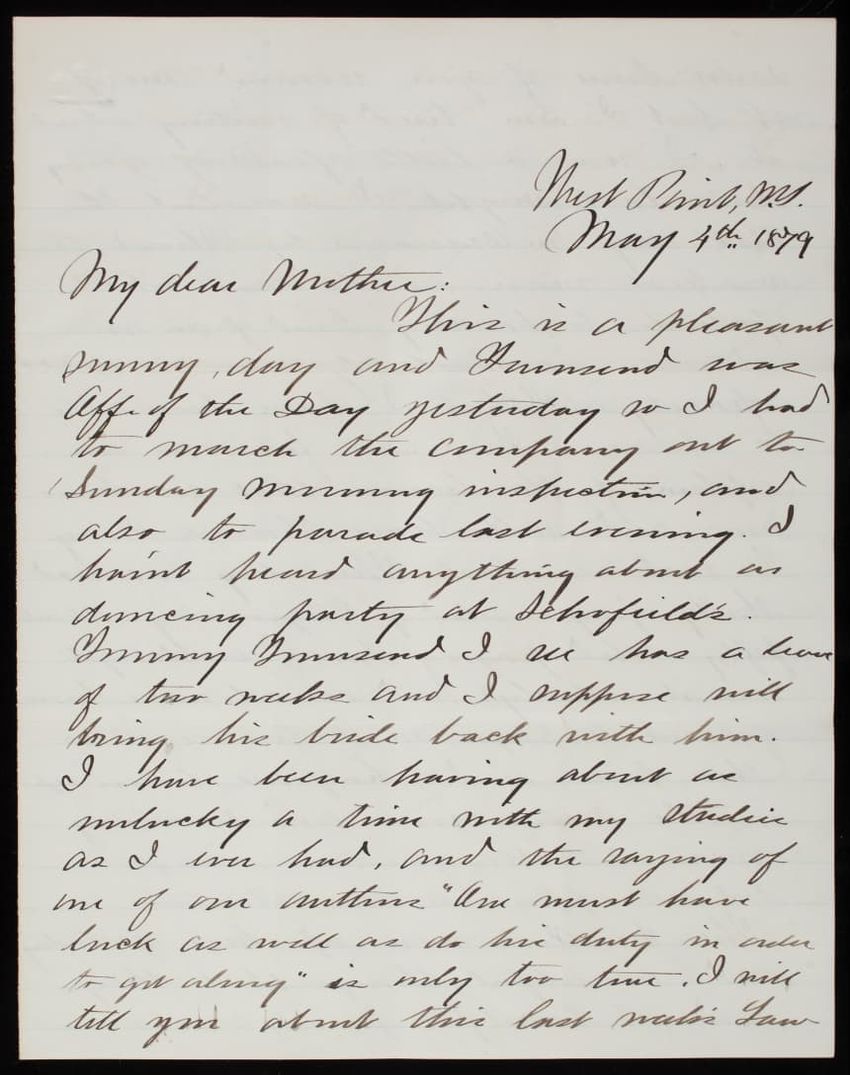 West Point, N.Y.
May 4th 1879
My dear Mother:
This is a pleasant
sunny, day and Townsend was
Off. of the Day yesterday so I had
to march the company out to
Sunday morning inspection, and
also to parade last evening. I
haint heard anything about a
dancing party at Schofield's.
Townsend I see has a leave
of two weeks and I suppose will
bring his bride back with him.
I have been having about as
unlucky a time with my studies
as I ever had, and the saying of
one of our authors "One must have
luck as well as do his duty in order
to get along" is only too true. I will
tell you about this last week's Law